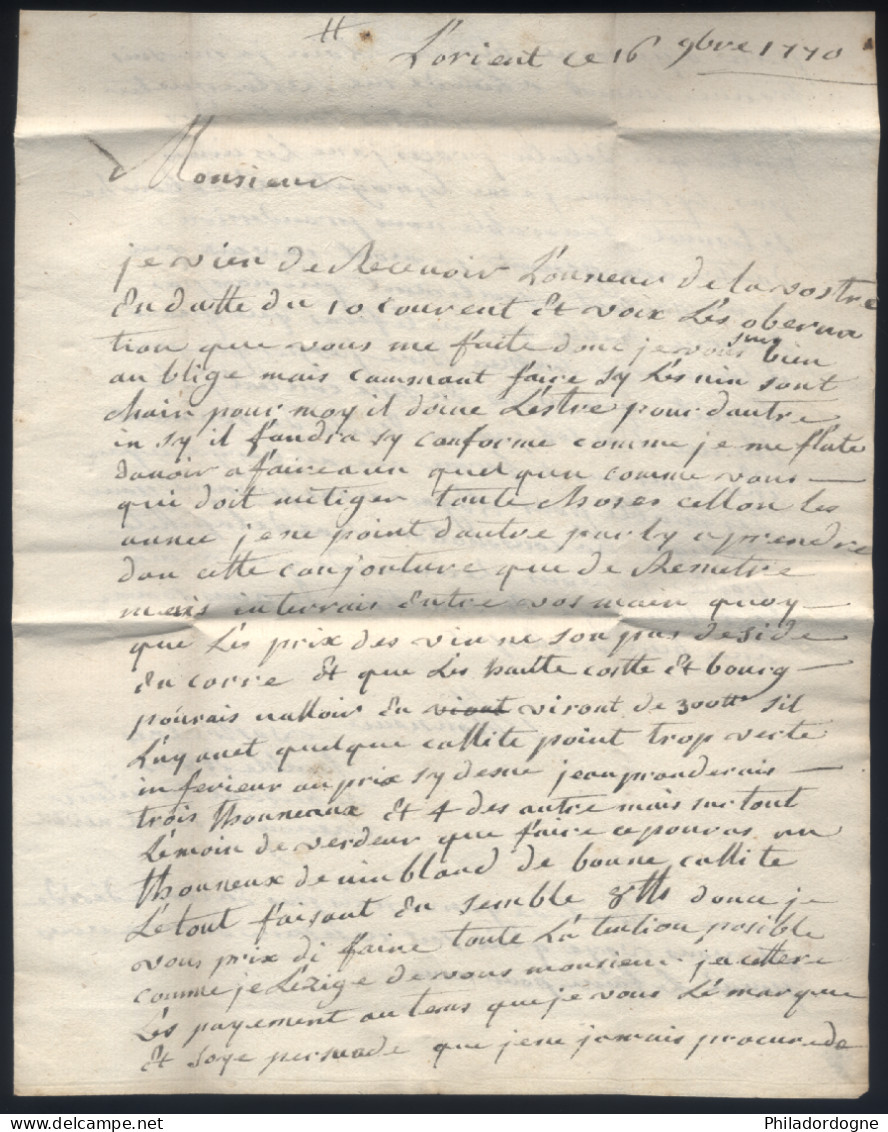 L'orient ce 16 9bre 1770
Monsieur
je vien de Recevoir L'onneur de la vostre
En datte du 10 courent Et voix Lés oberva
tion que vous me faite donc je vous suis bien
au blige mais cammant faire sy Lés vin sont
chair pour moy il doive L'estre pour dautre
in sy il faudra sy conforme comme je me flate
davoir afaire a un quelqun comme vous
qui doit metiger toute choses cellon les
année je ne point dautre party a prendre
dan cette conjonture que de Remetre
mes interrais Entre vos main quoy
que Lés prix des vin ne son pas deside
En corre Et que Lés haitte costte Et bourg
pourais valloir En viont viront de 300tt sil
L'ayanet quelque callite point trop verte
in ferieur au prix sy desue jean pranderais
trois thonneaux Et 4 des autre mais surtout
Lémoin de verdeur que faire ce pouras un
thonneux de vin bland de bonne callite
Lé tout faisant En semble 8tts donc je
vous prix di faire toute L'atention posible
comme je L'ezige de vous monsieur jacttere
Lés payement au tems que je vous Lé marque
Et soye persuade que je ne jamais procure de
Philadordogne